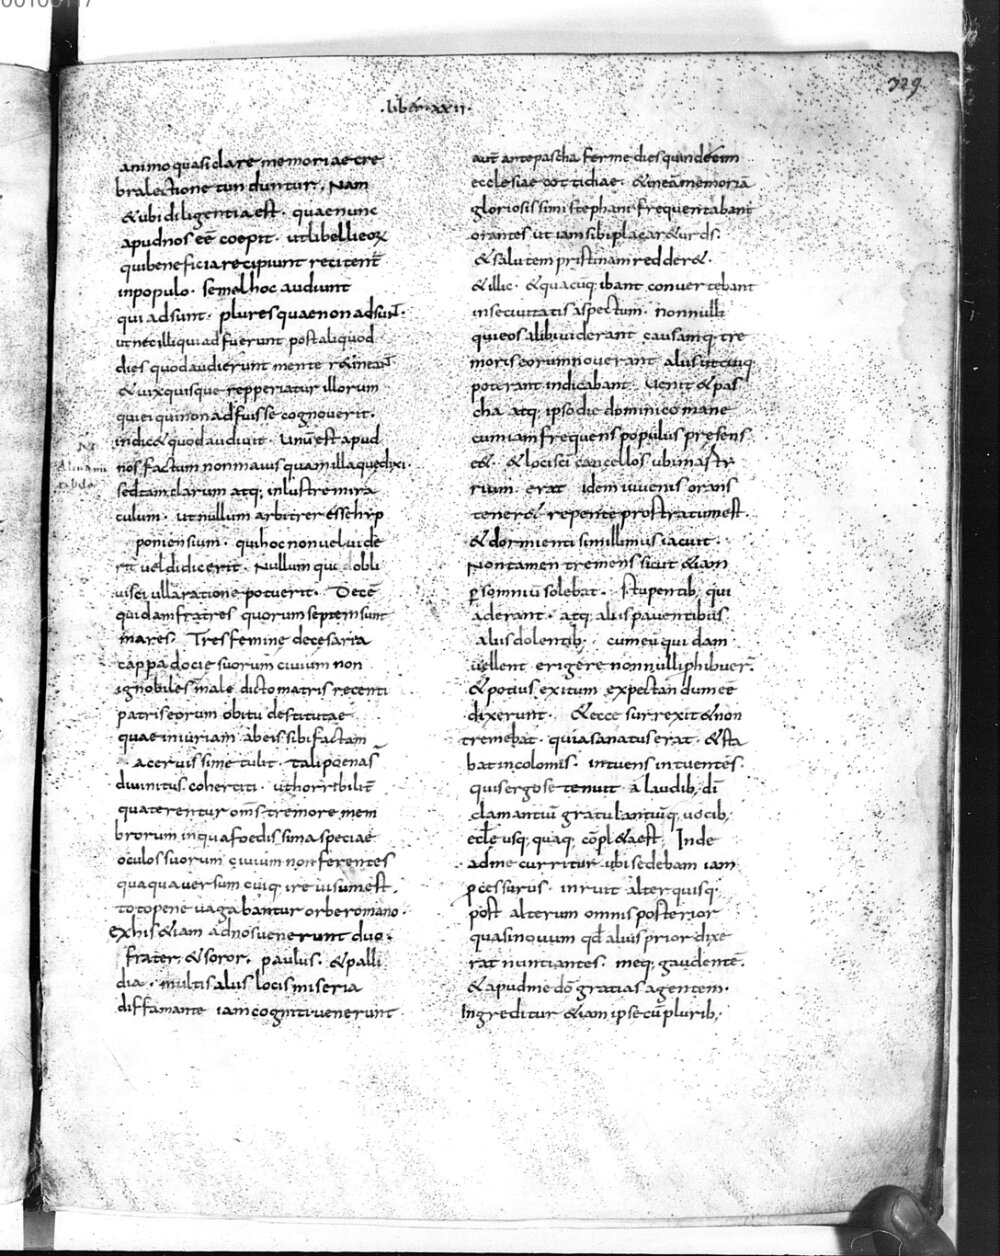 00100117
329
·liber·xxii·
animo quasi clare memoriae cre
bra lectione tunduntur. Nam
& ubi diligentia est· quae nunc
apud nos eē coepit· ut libelli eoꝝ
qui beneficia recipiunt recitent̄
in populo· semel hoc audiunt
qui adsunt· plures quae non adsunt̄·
ut nec illi qui adfuerunt post aliquod
dies quod audierunt mente r&ineant̄
& uix quisque repperiatur illorum
qui ei qui non adfuisse cognouerit·
indic& quod audiuit· Unū est apud
nos factum non maius quam illa que dixi·
sed tam clarum atq; inlustre mira
culum· ut nullum arbitrer esse hyp
poniensium· qui hoc non uel uide
rit uel didicerit· Nullum qui obli
uisci ulla ratione potuerit· Decē
quidam fratres quorum septem sunt
mares· Tres femine de cesaria
cappadocie suorum ciuium non
ignobiles male dicto matris recenti
patris eorum obitu destitutae
quae iniuriam ab eis sibi factam
aceruissime tulit· tali poenas̄
diuinitus coherciti· ut horribilit̄
quaterentur om̄s tremore mem
brorum in qua foedissima speciae
oculos suorum ciuium non ferentes
quaqua uersum cuiq; ire uisum est·
toto pene uagabantur orbe romano·
ex his &iam ad nos uenerunt duo·
frater, & soror· paulus· & palli
dia· multis aliis locis miseria
diffamante iam cogniti uenerunt
aut̄ ante pascha ferme dies quindecim
ecclesiae cottidiae· & in eā memoriā
gloriosissimi stephani frequentabant
orantes ut iam sibi placar&ur d̄s·
& salutem pristinam redder&·
& illic· & quacuq; ibant conuertebant
in se ciuitatis aspectum· nonnulli
qui eos alibi uiderant causamq; tre
moris eorum nouerant aliis ut cuiq;
poterant indicabant· Uenit & pas
cha atq; ipso die dominico mane
cum iam frequens populus presens
ēt· & loci sc̄i cancellos ubi martyr
rium erat idem iuuenis orans
tener& repente prostratum est·
& dormienti simillimus iacuit·
Non tamen tremens sicut &iam
ꝑ somniū solebat· stupentib; qui
aderant· atq; aliis pauentibus
aliis dolentib;· cum eū quidam
uellent erigere nonnulli phibuer̄·
& potius exitum expectandum eē
dixerunt· & ecce surrexit & non
tremebat· quia sanatus erat· & sta
bat incolomis· intuens intuentes·
quis ergo se tenuit a laudib; dī
clamantiū gratulantiūq; uocib;
eccłe usq; quaq; cōpl&a est· Inde
ad me curritur ubi sedebam iam
ꝓcessurus· inruit alter quisq;
post alterum omnis posterior
quasi nouum qd̄ alius prior dixe
rat nuntiantes· meq; gaudentē·
& apud me dō gratias agentem·
Ingreditur &iam ipse cū plurib;·